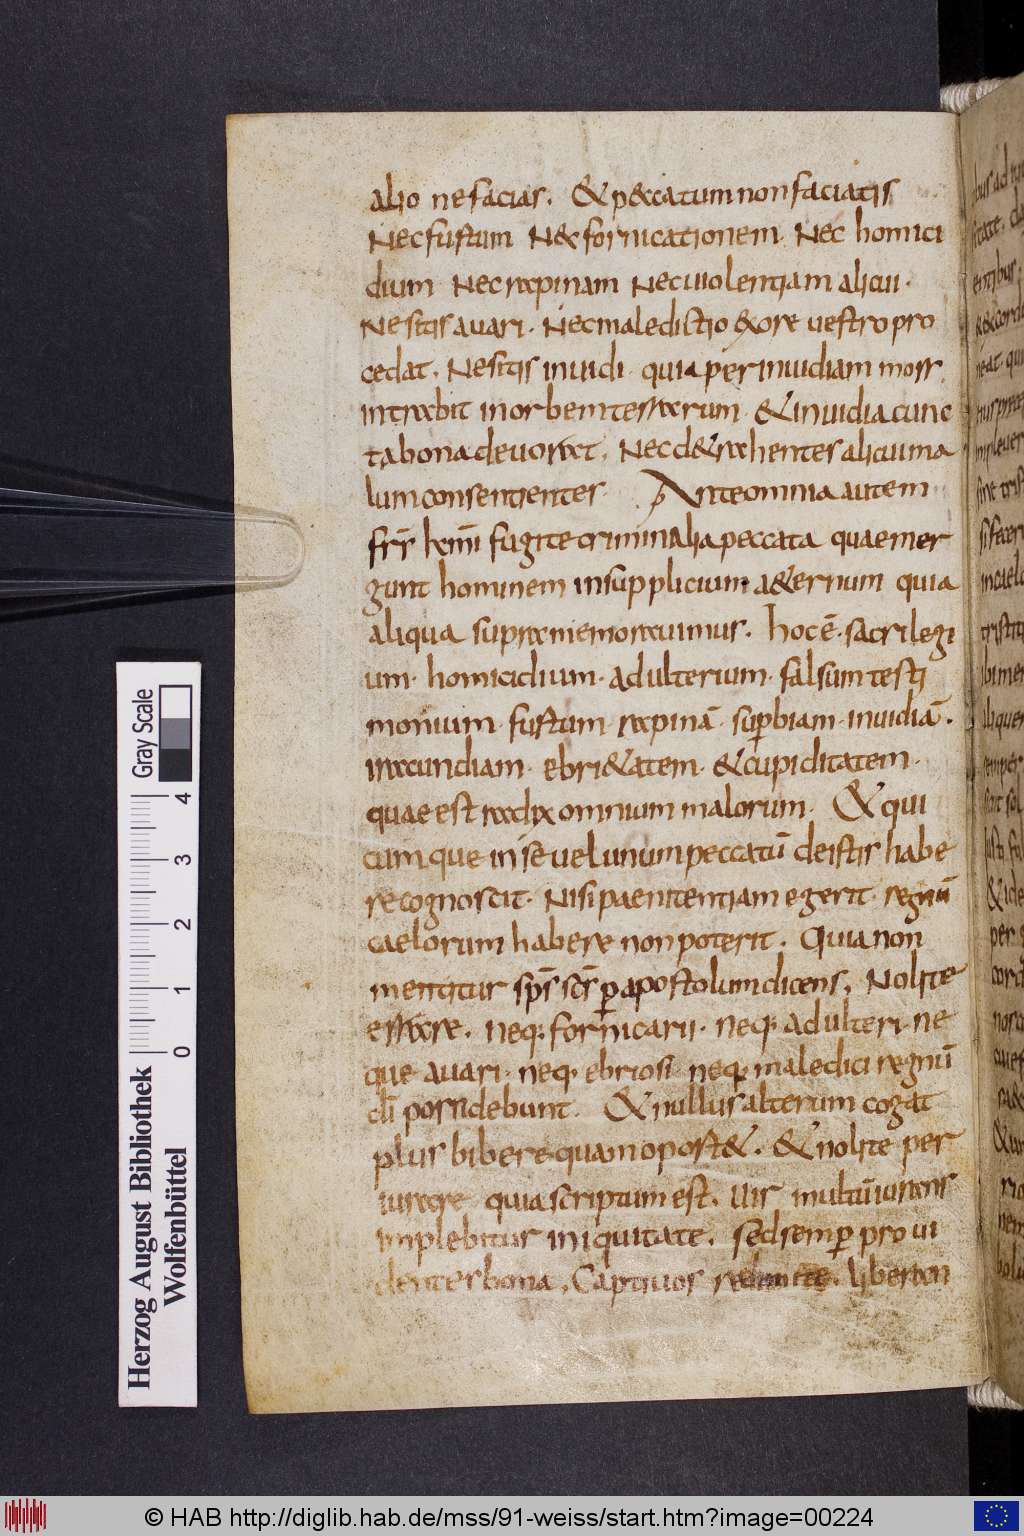 alio ne facias. & p&catum non faciatis
Nec furtum N& fornicationem. Nec homici
dium Nec rapinam Nec uiolentiam alicui.
Ne sitis auari. Nec maledictio &ore uestro pro
cedat. Ne sitis inuidi. quia per inuidiam mors
intrabit in orbem terrarum. & inuidia cunc
ta bona deuorat. Nec d&rahentes alicui ma
lum consentientes. Ante omnia autem
frr̄ kmī fugite criminalia peccata quae mer
gunt hominem in supplicium a&ernum quia
aliqua supra memorauimus. hoc ē. sacrilegi
um. homicidium. adulterium. falsum testi
monium. furtum. rapinā. suꝑbiam. inuidiā.
iracundiam. ebri&atem. & cupiditatem.
quae est radix omnium malorum. & qui
cumque in se uel unum peccatū de istis habe
re cognoscit. Nisi paenitentiam egerit. regnū
caelorum habere non poterit. Quia non
mentitur sp̄s sc̄s ꝑ apostolum dicens. Nolite
errare. neq; fornicarii. neq; adulteri. ne
que auari. neq; ebriosi. neq; maledici regnū
dī possidebunt. & nullus alterum cogat
plus bibere quam oport&. & nolite per
iurare quia scriptum est. Uir multū iurans
implebitur iniquitate. sed semꝑ prouі
dentes bona. Captiuos redimite. liberan
Herzog August Bibliothek
Wolfenbüttel
0 1 2 3 4
Gray Scale
© HAB http://diglib.hab.de/mss/91-weiss/start.htm?image=00224